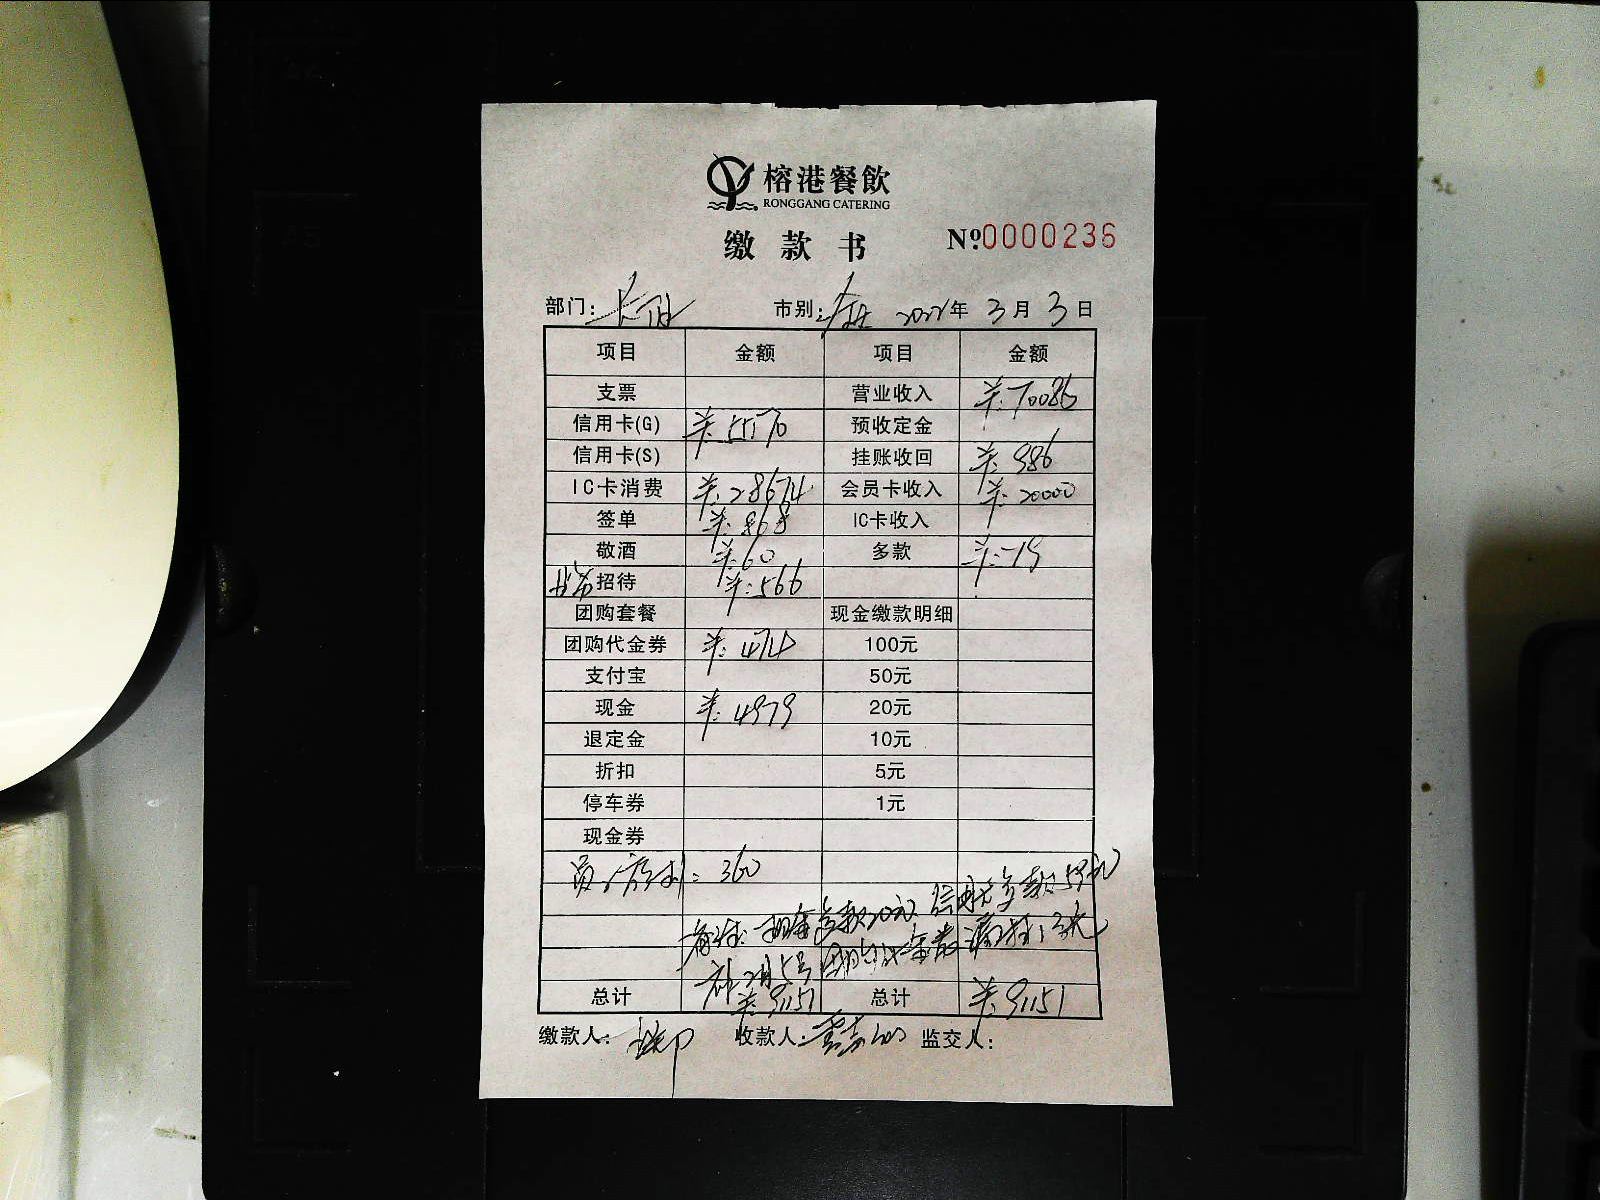 榕港餐飲
RONGGANG CATERING
缴款书 №0000236
部门: 市别: 年 3月 3日
项目 金额 项目 金额
支票 营业收入
信用卡(G) ¥:55170 预收定金
信用卡(S) 挂账收回 ¥:986
IC卡消费 ¥:28674 会员卡收入 ¥:20000
签单 ¥:868 IC卡收入
敬酒 ¥:60 多款 ¥:-19
招待 ¥:566
团购套餐 现金缴款明细
团购代金券 ¥:474 100元
支付宝 50元
现金 ¥:4979 20元
退定金 10元
折扣 5元
停车券 1元
现金券
: 360
备注: 现金多款20元
补2月5号
总计 ¥:91151 总计 ¥:91151
缴款人: 收款人: 监交人: